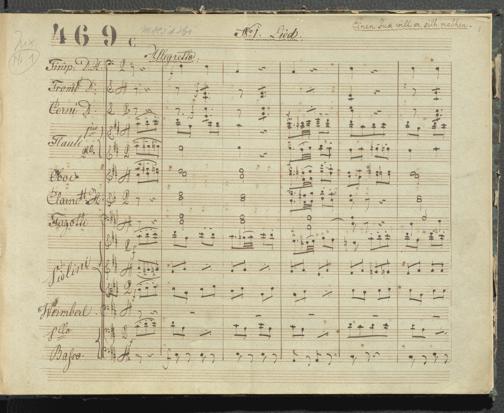 469 c
Nº 1. Lied.
Einen Jux will er sich machen.
Jux
Nº 1
Allegretto
Timp: D. A.
Tromb D.
Corni D.
Flauti
Oboe
Clarinetti A.
Fagotti
Violini
Weinberl.
Cello
Basso